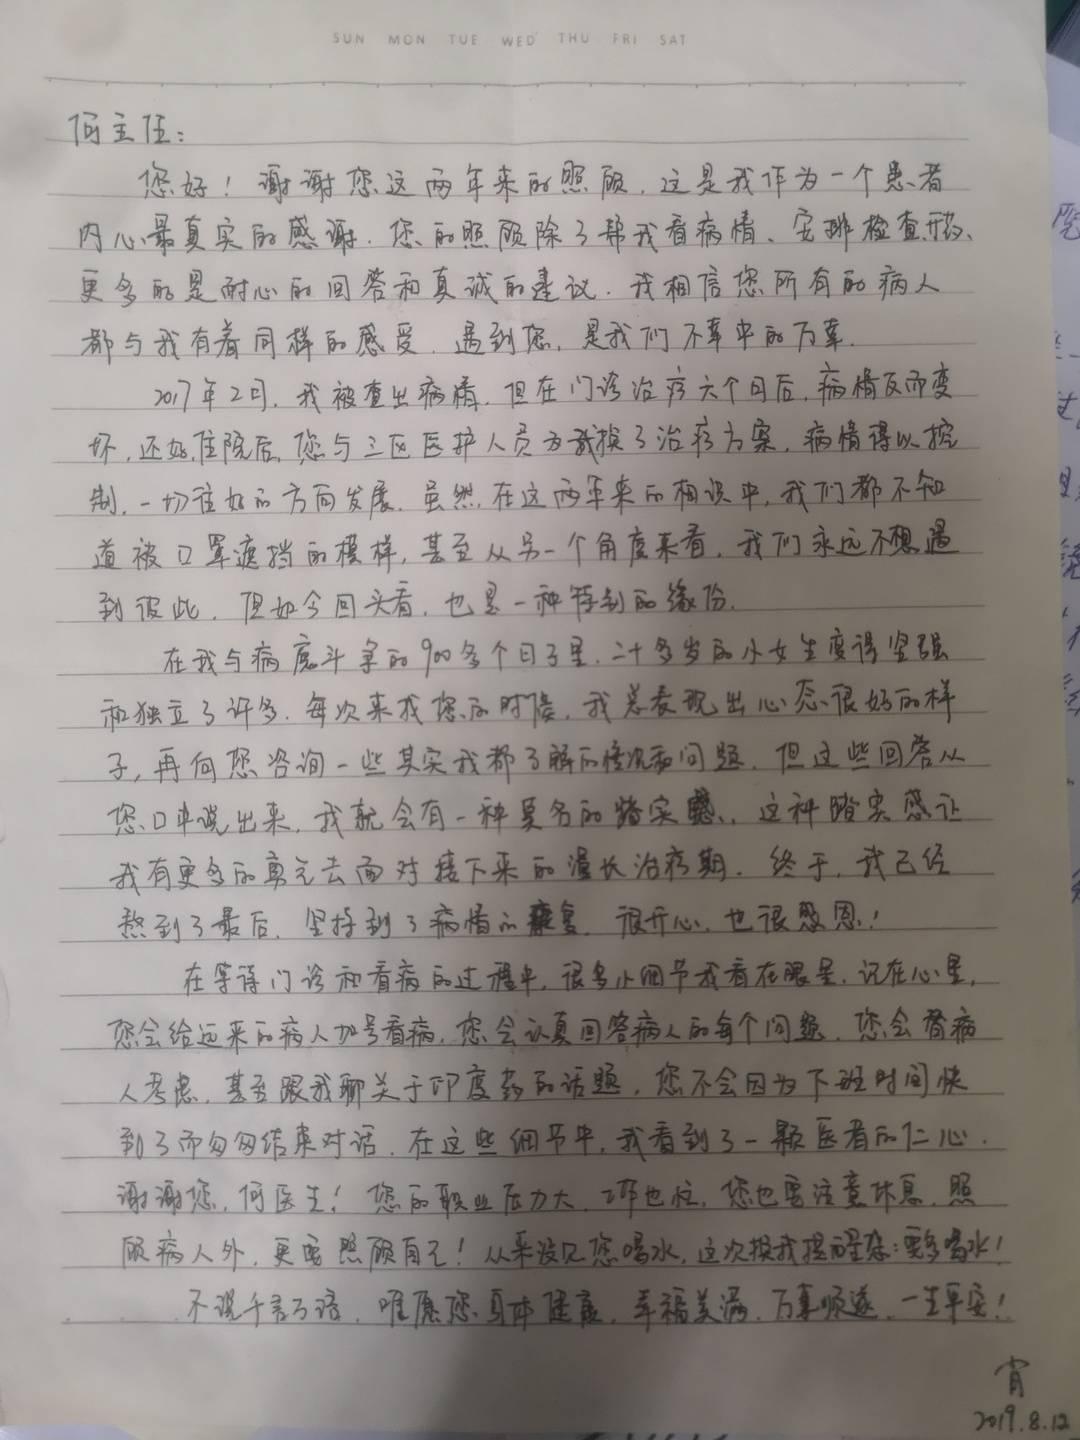 SUN MON TUE WED THU FRI SAT
何主任：
您好！谢谢您这两年来的照顾，这是我作为一个患者
内心最真实的感谢．您的照顾除了帮我看病情、安排检查、开药、
更多的是耐心的回答和真诚的建议．我相信您所有的病人
都与我有着同样的感受．遇到您，是我们不幸中的万幸．
2017年2月，我被查出病情，但在门诊治疗六个月后，病情反而变
坏，还好住院后，您与三区医护人员为我换了治疗方案，病情得以控
制，一切往好的方向发展．虽然，在这两年来的相识中，我们都不知
道被口罩遮挡的模样，甚至从另一个角度来看，我们永远不想遇
到彼此．但如今回头看，也是一种特别的缘份．
在我与病魔斗争的900多个日子里，二十多岁的小女生变得坚强
和独立了许多．每次来找您的时候，我总表现出心态很好的样
子，再向您咨询一些其实我都了解的情况和问题．但这些回答从
您口中说出来，我就会有一种莫名的踏实感．这种踏实感让
我有更多的勇气去面对接下来的漫长治疗期．终于，我已经
熬到了最后，坚持到了病情的康复．很开心，也很感恩！
在等待门诊和看病的过程中，很多小细节我看在眼里，记在心里，
您会给远来的病人加号看病，您会认真回答病人的每个问题，您会替病
人考虑，甚至跟我聊关于印度药的话题，您不会因为下班时间快
到了而匆匆结束对话．在这些细节中，我看到了一颗医者的仁心．
谢谢您，何医生！您的职业压力大，工作也忙，您也要注意休息，照
顾病人外，更要照顾自己！从来没见您喝水，这次换我提醒您：要多喝水！
不说千言万语，唯愿您身体健康，幸福美满，万事顺遂，一生平安！
肖
2019.8.12